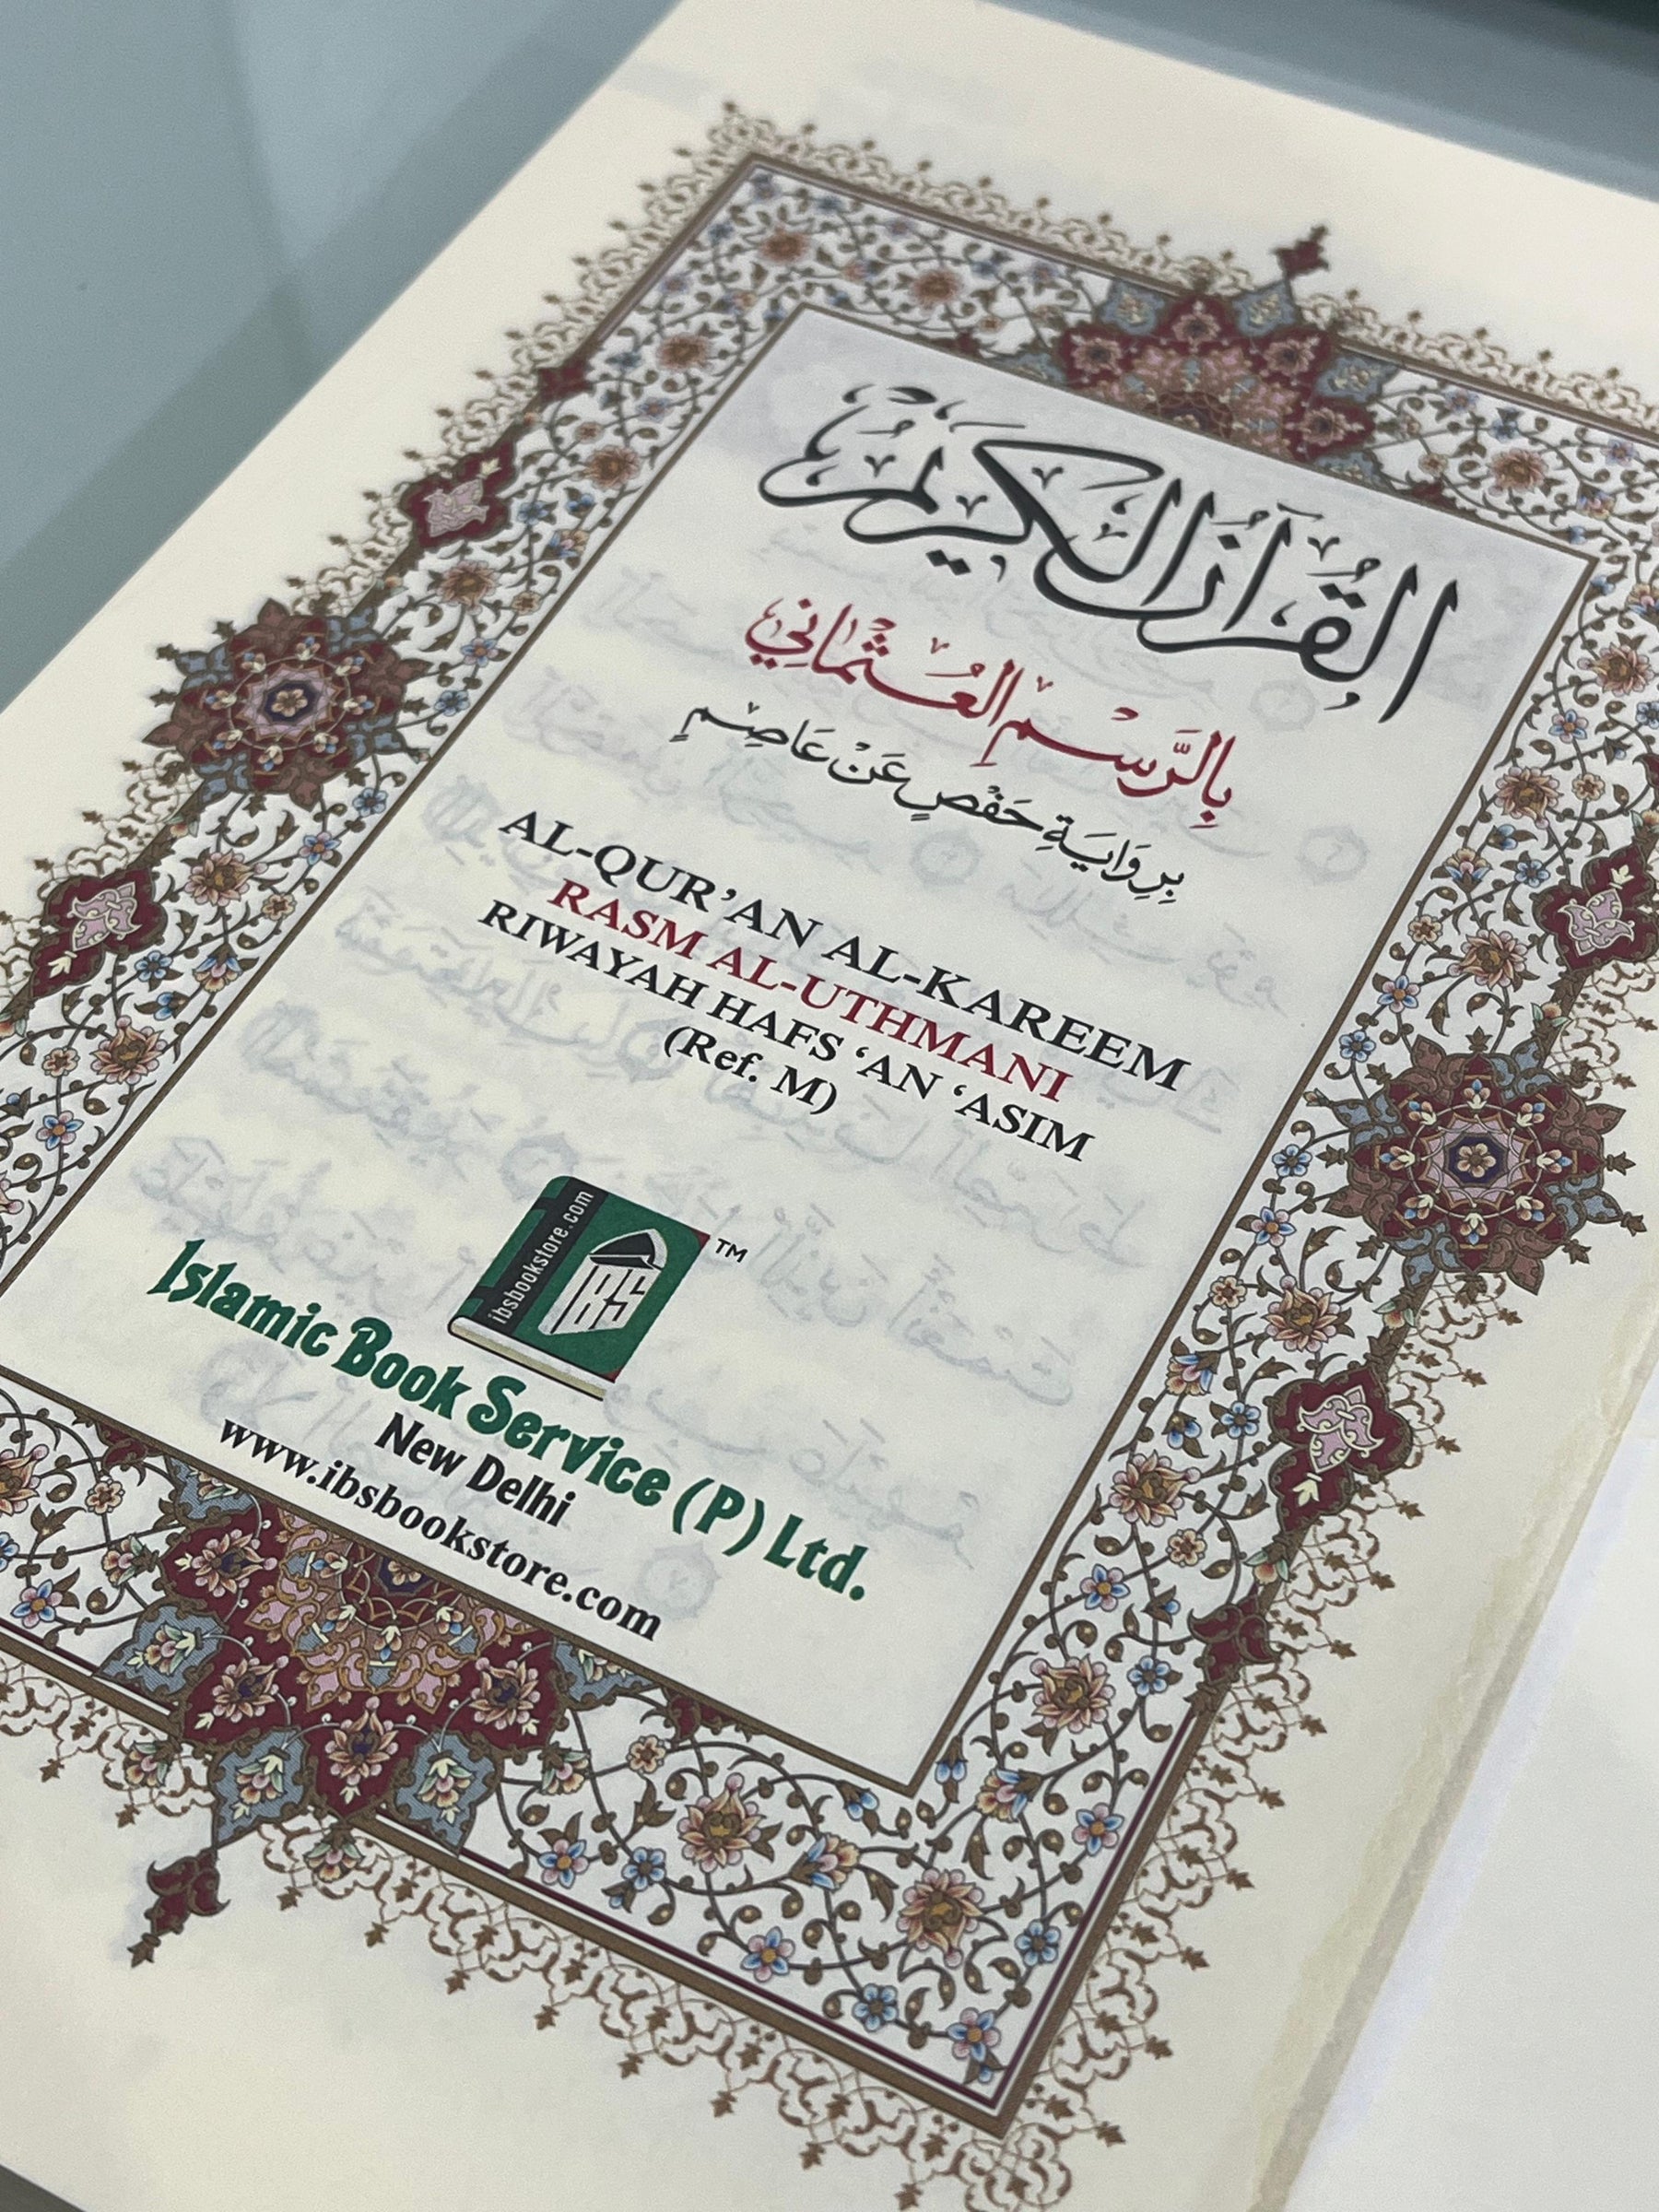 القُرْآنُ الكَرِيمُ
بِالرَّسْمِ العُثْمَانِي
بِرِوَايَةِ حَفْصٍ عَنْ عَاصِمٍ
AL-QUR’AN AL-KAREEM
RASM AL-UTHMANI
RIWAYAH HAFS ‘AN ‘ASIM
(Ref. M)
ibsbookstore.com
IBS
TM
Islamic Book Service (P) Ltd.
New Delhi
www.ibsbookstore.com